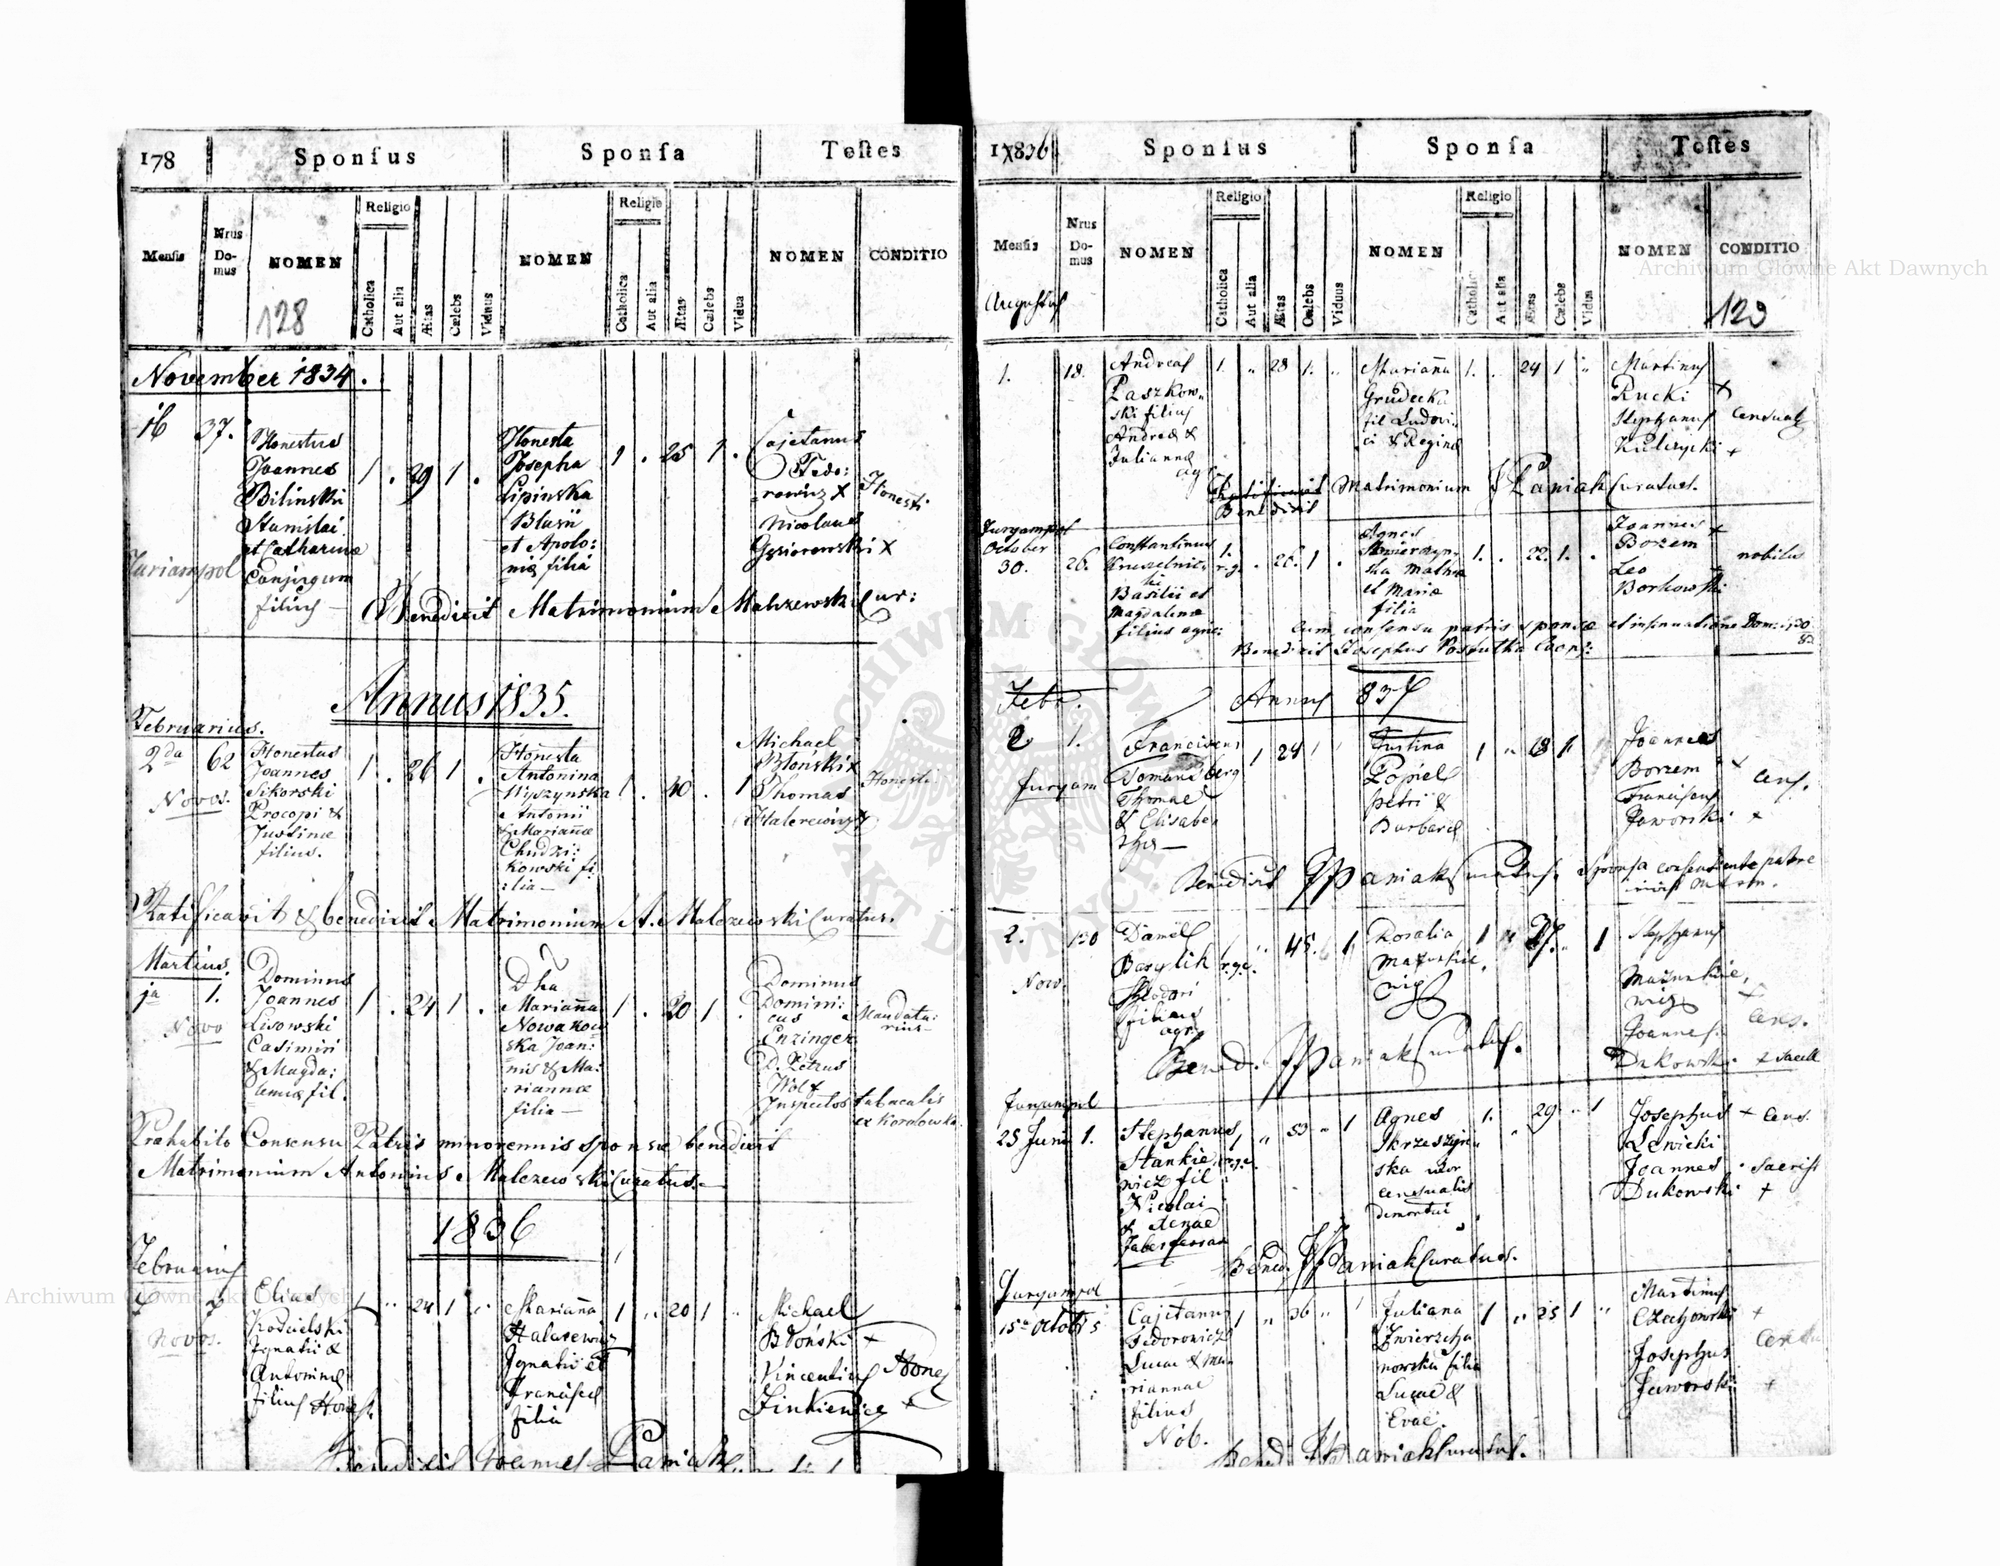 178 Sponsus Sponsa Testes
Mensis Nrus Domus NOMEN Religio Catholica Aut alia Ætas Cælebs Viduus NOMEN Religio Catholica Aut alia Ætas Cælebs Vidua NOMEN CONDITIO
128
November 1834.
16 37.
Honestus
Joannes
Bilinski
Stanislai
et Catharinæ
Conjugum
filius
Juriampol
1 . 29 1 .
Honesta
Josepha
Lipinska
Blasii
et Apolo:
niæ filia
1 . 25 1 .
Cajetanus
Fedo:
rowicz X
Nicolaus
Gąsiorowski X
Honesti
Benedixit Matrimonium Malczewski Cur:
Annus 1835.
Februarius.
2da 62
Novos.
Honestus
Joannes
Sikorski
Procopi &
Justinæ
filius.
1 . 26 1 .
Honesta
Antonina
Wyszynska
Antonii
& Mariannæ
Chudzi:
kowski fi:
:lia
1 . 40 . 1
Michael
Błonski x
Thomas
Halerewicz
Honesti
Ratificavit & benedixit Matrimonium A. Malczewski Curatus.
Martius.
ja 1.
Novo
Dominus
Joannes
Lisowski
Casimiri
& Magda:
lenæ fil.
1 . 24 1 .
Dna
Marianna
Nowakow
ska Joan:
nis & Ma:
riannæ
filia
1 . 20 1 .
Dominus
Domini:
cus
Enzinger
D. Petrus
Wolf
Inspector tabacalis
ex Korolowka
Mandata:
rius
Præhabito Consensu Patris minorennis sponsæ benedixit
Matrimonium Antonius Malczewski Curatus.
1836
Februarius
Novos.
Elias
Ignatii &
Antoninæ
filius Honest.
1 " 24 1 "
Marianna
Halarewicz
Ignatii et
Franciscæ
filia
1 " 20 1 "
Michael
Błoński +
Vincentius
Zinkiewicz +
Hones
Benedixit Joannes Paniak
1836 Sponsus Sponsa Testes
Mensis Nrus Domus NOMEN Religio Catholica Aut alia Ætas Cælebs Viduus NOMEN Religio Catholica Aut alia Ætas Cælebs Vidua NOMEN CONDITIO
129
Augustus
1. 18.
Andreas
Paszkow
ski filius
Andreæ &
Juliannæ
ag
1. " 28 1. "
Marianna
Grudecka
fil Ludovi
ci & Reginæ
1. . 24 1 "
Martinus
Rucki +
Stephanus
Kulczycki +
Censual
Benedixit Matrimonium J Paniak Curatus.
Juryampol
October
30. 26.
Constantinus
Basilii et
Magdalenæ
filius agric:
1. r.g. . 26. 1 .
Agnes
Skwierczyn
ska Mathiæ
et Mariæ
filia
1. . 22. 1. .
Joannes +
Borzem
Leo
Borkowski
nobiles
cum consensu patris sponsæ et insinuatione Dom:
Benedixit Josephus Coop:
Febr. Annus 837
2 1.
Juryam
Franciscus
Domansberg
Thomæ
& Elisabe
thæ
1 24 1
Justina
Popiel
Petri &
Barbaræ
1 " 18 1
Joannes
Borzem +
Franciscus
Jaworski +
Cens.
Benedixit J Paniak Curatus. Sponsa consentiente patre
2. 130
Now.
Daniel
Basylik
Theodori
filius
agr.
r.g.c. 45. 1
Rosalia
Mazurkie
wicz
1 " 37. " 1
Stephanus
Mazurkie
wicz +
Joannes
Dukowski + Sacell
Cens.
Bened. J Paniak Curatus.
Juryampol
25 Juni 1.
Stephanus
Stankie
wicz fil
Nicolai
& Xenæ
1 r.g.c. " 53 " 1
Agnes
Skrzeszyn
ska uxor
censualis
demortui
1. " 29 " 1
Josephus + Cens.
Lewicki
Joannes . Sacrist
Dukowski +
Bened. J Paniak Curatus.
Juryampol
15ta Octobr 5
Cajetanus
Fedorowicz
Lucæ & Ma
riannæ
filius
Nob.
1 " 36 " 1
Juliana
Zwierzcha
nowska filia
Lucæ &
Evæ.
1 " 25 1 "
Martinus
Czechowski +
Josephus
Jaworski +
Bened J Paniak Curatus.
Archiwum Główne Akt Dawnych
Archiwum Główne Akt Dawnych
ARCHIWUM GŁÓWNE AKT DAWNYCH